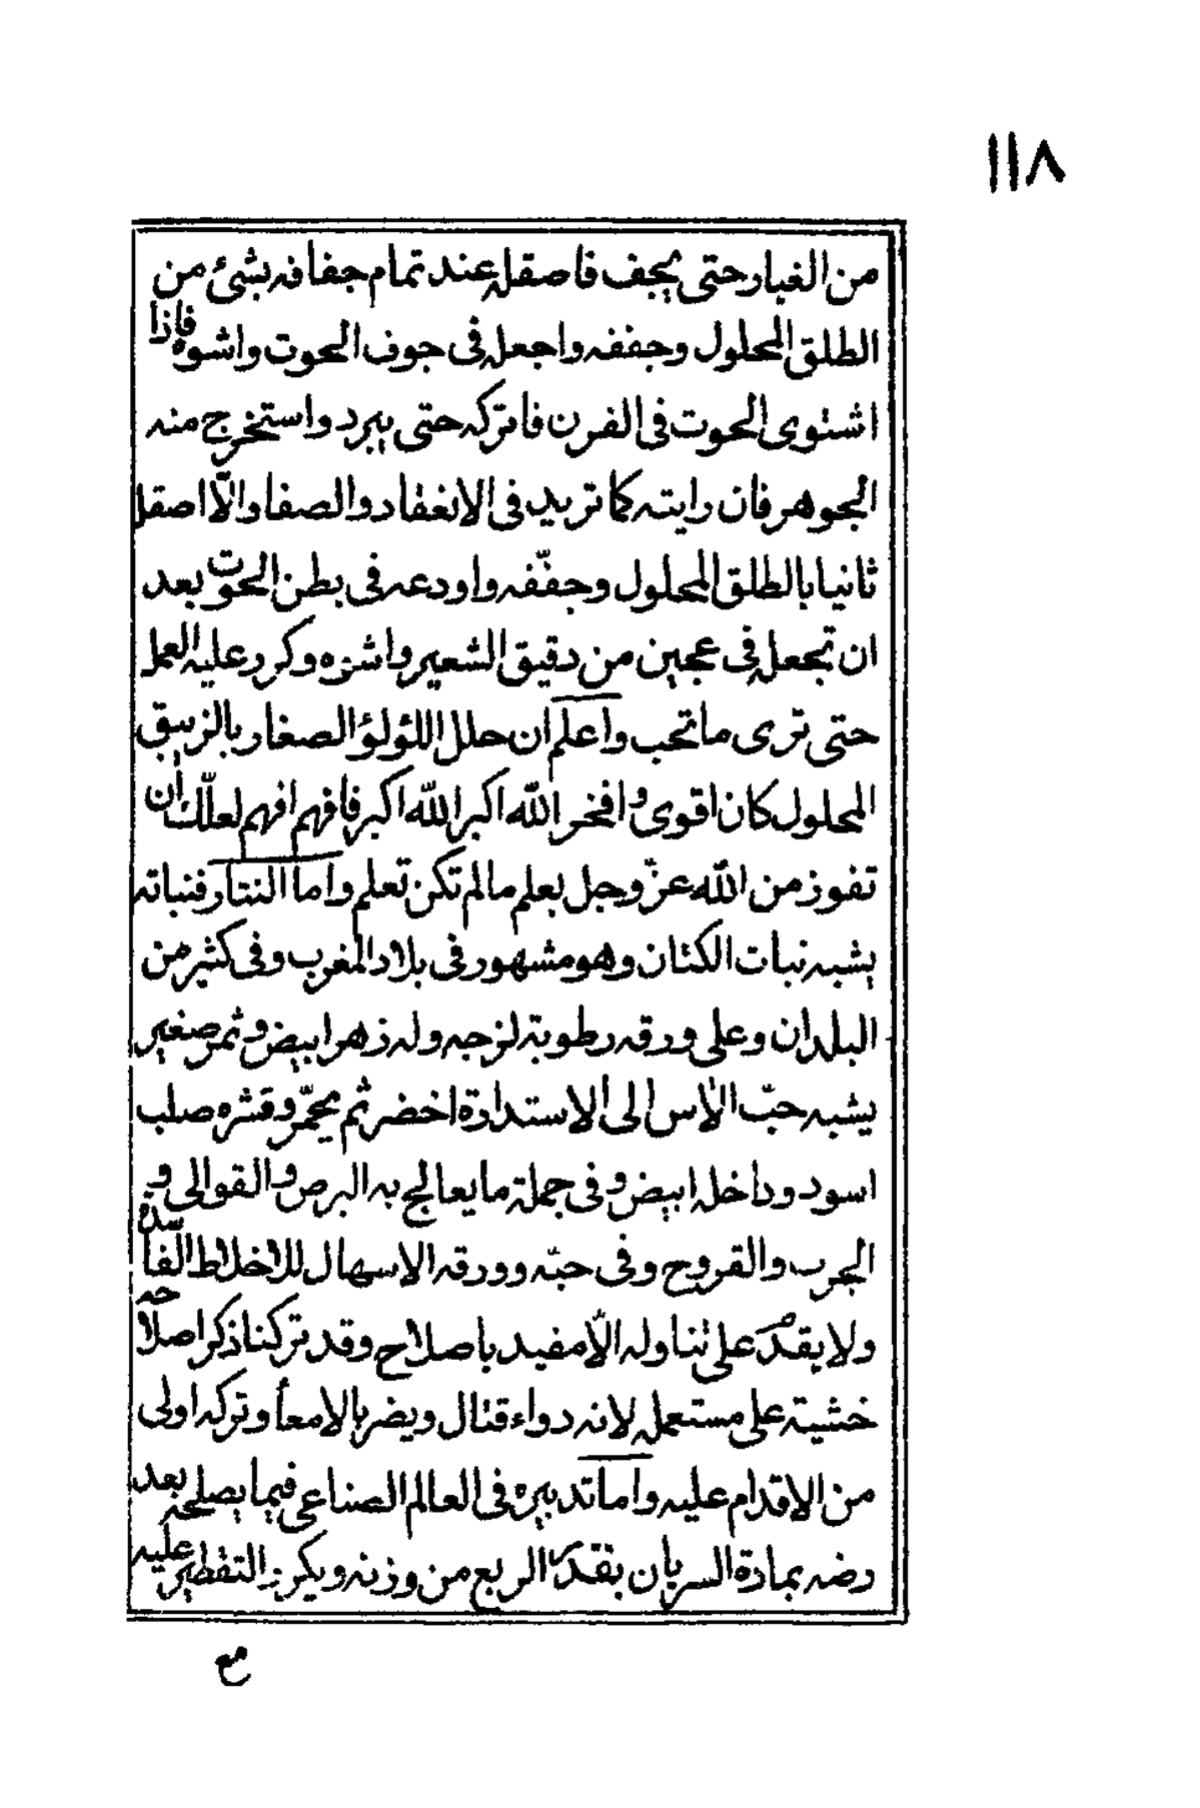 ١١٨
من الغبار حتى يجف فاصقله عند تمام جفافه بشئ من
الطلق المحلول وجففه واجعله فى جوف الحوت واشوه فاذا
اشتوى الحوت فى الفرن فاتركه حتى يبرد واستخرج منه
الجوهر فان رايته كما تريد فى الانعقاد والصفا والّا اصقله
ثانيا بالطلق المحلول وجفّفه واودعه فى بطن الحوت بعد
ان تجعله فى عجين من دقيق الشعير واشوه وكرر عليه العمل
حتى ترى ما تحب واعلم ان حلل اللؤلؤ الصغار بالزيبق
المحلول كان اقوى وافخر الله اكبر الله اكبر فافهم افهم لعلّك ان
تفوز من الله عزّ وجل بعلم مالم تكن تعلم واما النتار فنباته
يشبه نبات الكتان وهو مشهور فى بلاد المغرب وفى كثير من
البلدان وعلى ورقه رطوبة لزجه وله زهر ابيض وثمر صغير
يشبه حبّ الاٰس الى الاستدارة اخضر ثم يحمّر وقشره صلب
اسود وداخله ابيض وفى جملة ما يعالج به البرص والقوالى و
الجرب والقروح وفى حبّه وورقه الاسهال للاخلاط الفاسده
ولا يقدر على تناوله الّا مفيد باصلاح وقد تركنا ذكر اصلاحه
خشية على مستعمله لانه دواء قتال ويضر بالامعأ وتركه اولى
من الاقدام عليه واما تدبيره فى العالم الصناعى فيما يصلحه بعد
رضه بمادة السربان بقدر الربع من وزنه ويكرر التقطير عليه
مع